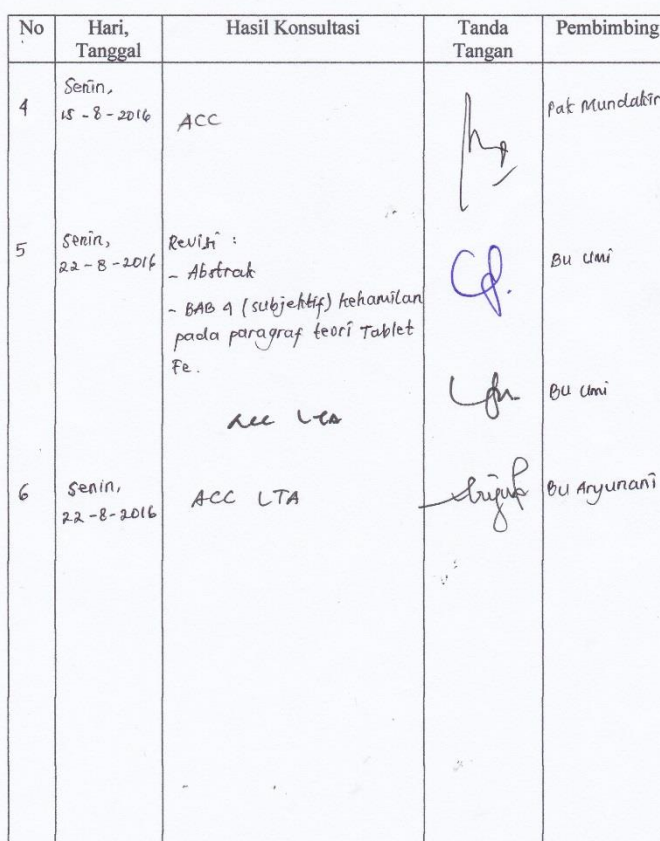 No Hari, Tanggal Hasil Konsultasi Tanda Tangan Pembimbing
4 Senin, 15-8-2016 ACC Pak Mundakir
5 Senin, 22-8-2016 Revisi : Bu Umi
- Abstrak
- BAB 4 (subjektif) kehamilan
pada paragraf teori Tablet
Fe.
Acc LTA Bu Umi
6 Senin, 22-8-2016 ACC LTA Bu Aryunani